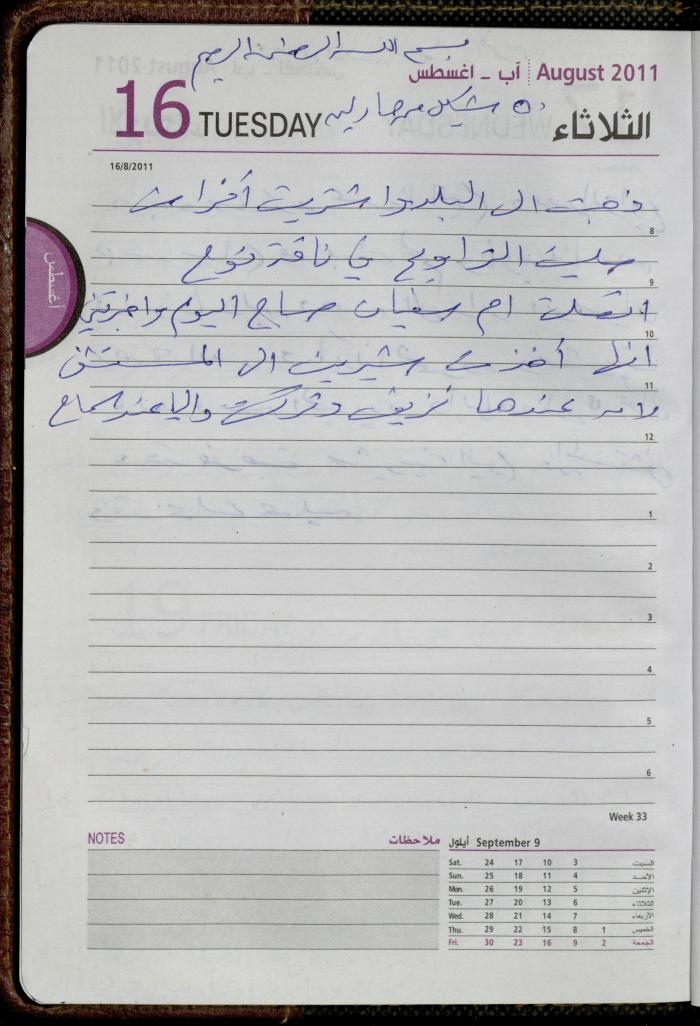 بسم الله الرحمن الرحيم
آب - اغسطس August 2011
16 TUESDAY ٥٠ شيكل مصاريف الثلاثاء
16/8/2011
ذهبت ال البلد واشتريت أغراض
8
صليت التراويح في
9
اتصلة ام سفيان صباح اليوم واخبرتني
10
انها أخذت شيرين ال المستشفى
11
لانه عندها نزيف وتركت
12
1
2
3
4
5
6
أغسطس
Week 33
NOTES ملاحظات
أيلول September 9
Sat. 24 17 10 3 السبت
Sun. 25 18 11 4 الأحـد
Mon. 26 19 12 5 الإثنين
Tue. 27 20 13 6 الثلاثاء
Wed. 28 21 14 7 الأربعاء
Thu. 29 22 15 8 1 الخميس
Fri. 30 23 16 9 2 الجمعة